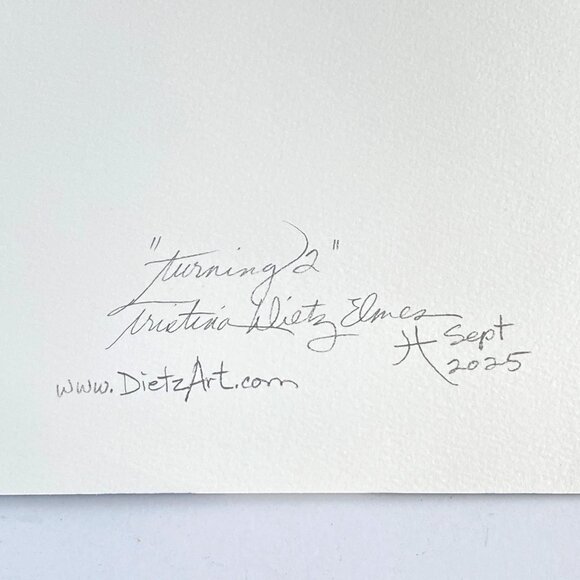 "turning 2"
Tristina Dietz Elmes
Sept
2025
www.DietzArt.com